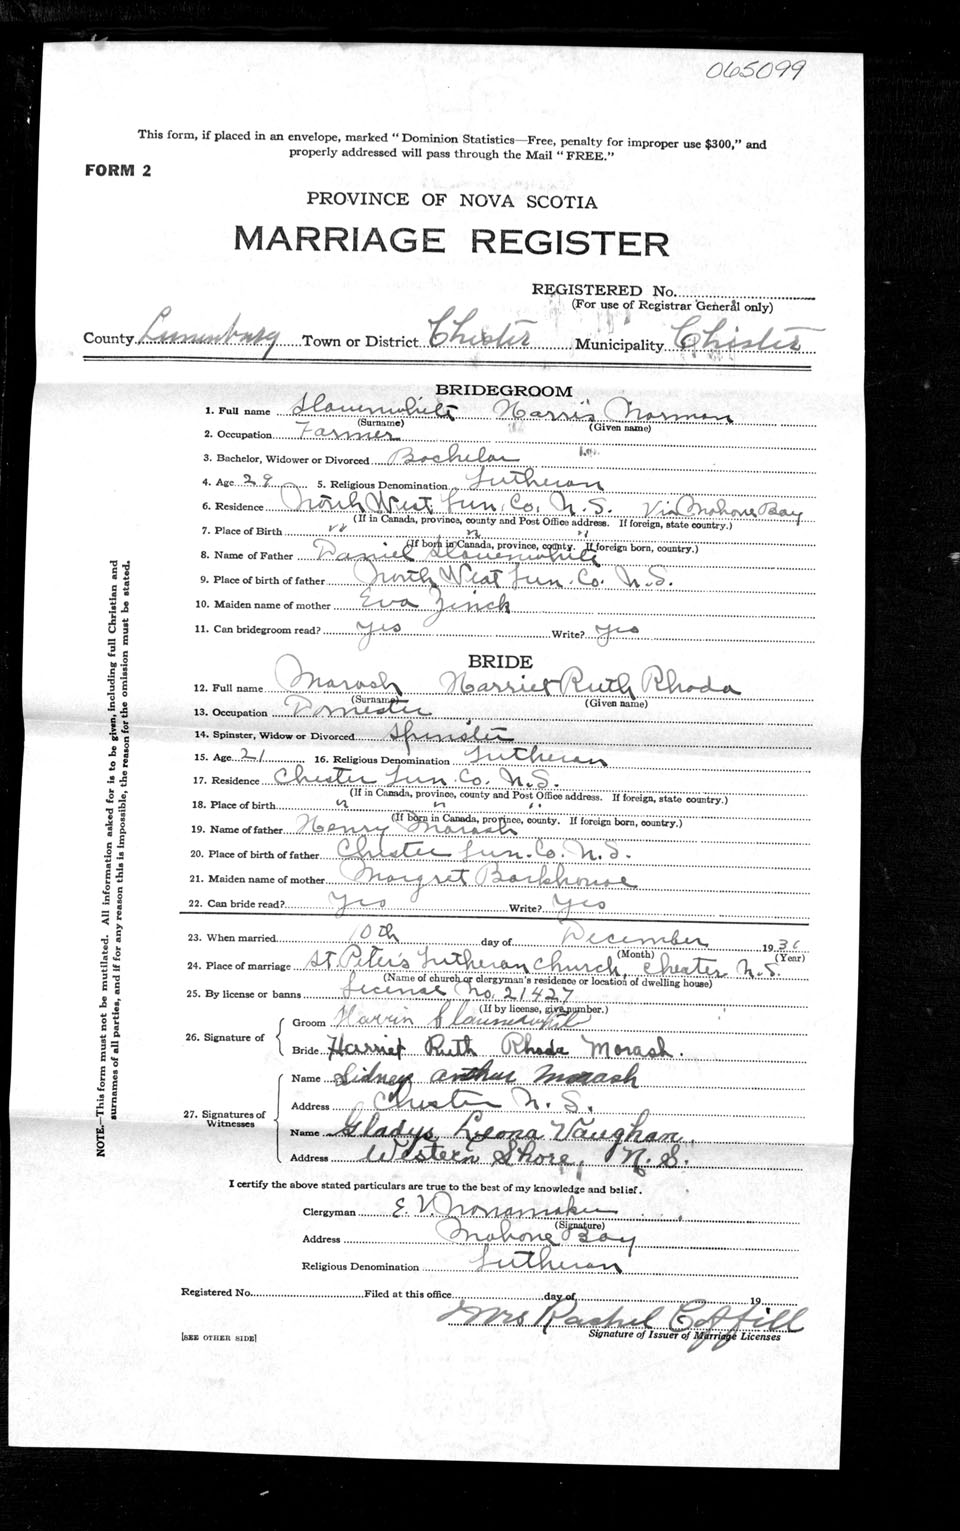 065099
This form, if placed in an envelope, marked "Dominion Statistics—Free, penalty for improper use $300," and
properly addressed will pass through the Mail "FREE."
FORM 2
PROVINCE OF NOVA SCOTIA
MARRIAGE REGISTER
REGISTERED No.
(For use of Registrar General only)
County Lunenburg Town or District Chester Municipality Chester
BRIDEGROOM
1. Full name Slauenwhite Harris Norman
(Surname) (Given name)
2. Occupation Farmer
3. Bachelor, Widower or Divorced Bachelor
4. Age 29 5. Religious Denomination Lutheran
6. Residence North West Lun. Co. N.S. Via Mahone Bay
(If in Canada, province, county and Post Office address. If foreign, state country.)
7. Place of Birth " " "
(If born in Canada, province, county. If foreign born, country.)
8. Name of Father Daniel Slauenwhite
9. Place of birth of father North West Lun. Co. N.S.
10. Maiden name of mother Eva Zinck
11. Can bridegroom read? yes Write? yes
BRIDE
12. Full name Morash Harriet Ruth Rhoda
(Surname) (Given name)
13. Occupation Domestic
14. Spinster, Widow or Divorced Spinster
15. Age 21 16. Religious Denomination Lutheran
17. Residence Chester Lun. Co. N.S.
(If in Canada, province, county and Post Office address. If foreign, state country.)
18. Place of birth " " "
(If born in Canada, province, county. If foreign born, country.)
19. Name of father Henry Morash
20. Place of birth of father Chester Lun. Co. N.S.
21. Maiden name of mother Margret Barkhouse
22. Can bride read? Yes Write? Yes
23. When married 10th day of December 19
(Month) (Year)
24. Place of marriage St. Peter's Lutheran Church, Chester N.S.
(Name of church or clergyman's residence or location of dwelling house)
25. By license or banns License No. 21427
(If by license, give number.)
26. Signature of
Groom Slauenwhite
Bride Harriet Ruth Rhoda Morash.
27. Signatures of Witnesses
Name Sidney Arthur Morash
Address Chester N.S.
Name Gladys Leona Vaughan.
Address Western Shore, N.S.
I certify the above stated particulars are true to the best of my knowledge and belief.
Clergyman E. V. Nonamaker
(Signature)
Address Mahone Bay
Religious Denomination Lutheran
Registered No. Filed at this office day of 19
Mrs Rachel Coffill
Signature of Issuer of Marriage Licenses
[SEE OTHER SIDE]
NOTE.—This form must not be mutilated. All information asked for is to be given, including full Christian and
surnames of all parties, and if for any reason this is impossible, the reason for the omission must be stated.